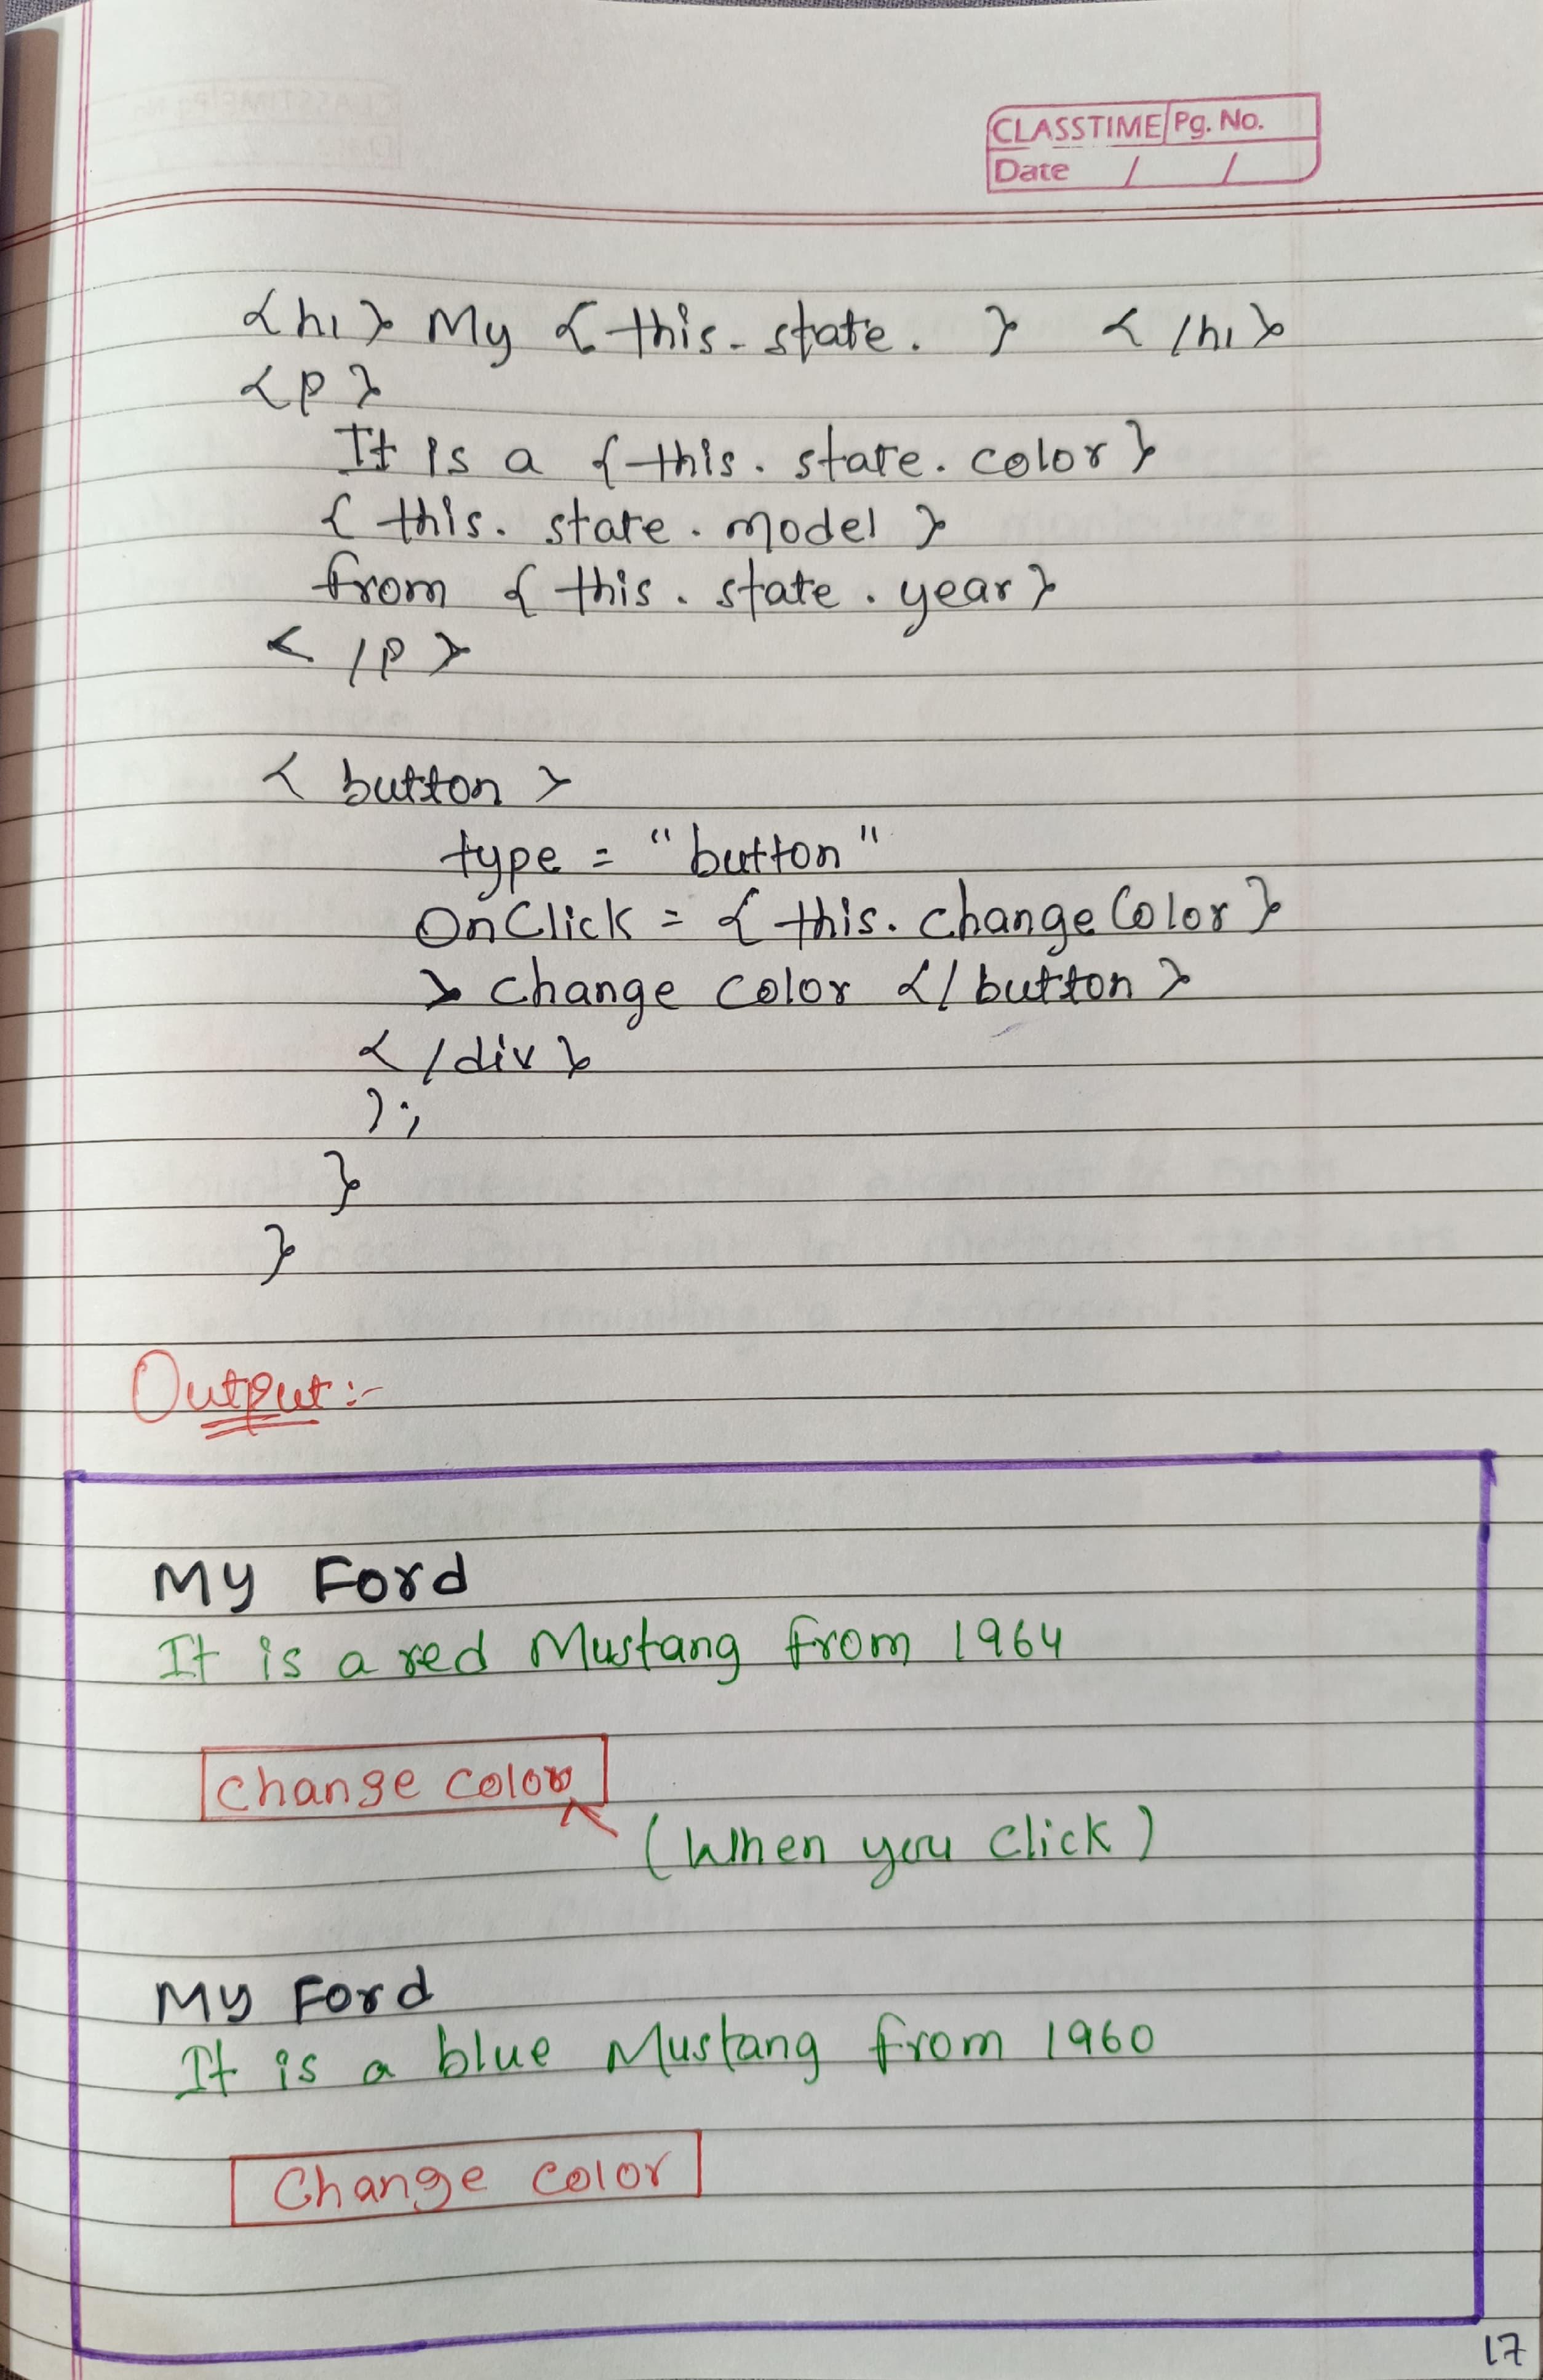 CLASSTIME Pg. No.
Date / /
<h1> My { this. state. } < /h1>
<p>
It is a {this. state. color}
{ this. state. model }
from { this. state. year}
< /p>
< button >
type = "button"
OnClick = { this. changeColor}
> change color </ button >
< /div>
);
}
}
Output :-
My Ford
It is a red Mustang from 1964
change color
(When you click)
My Ford
It is a blue Mustang from 1960
Change color
17